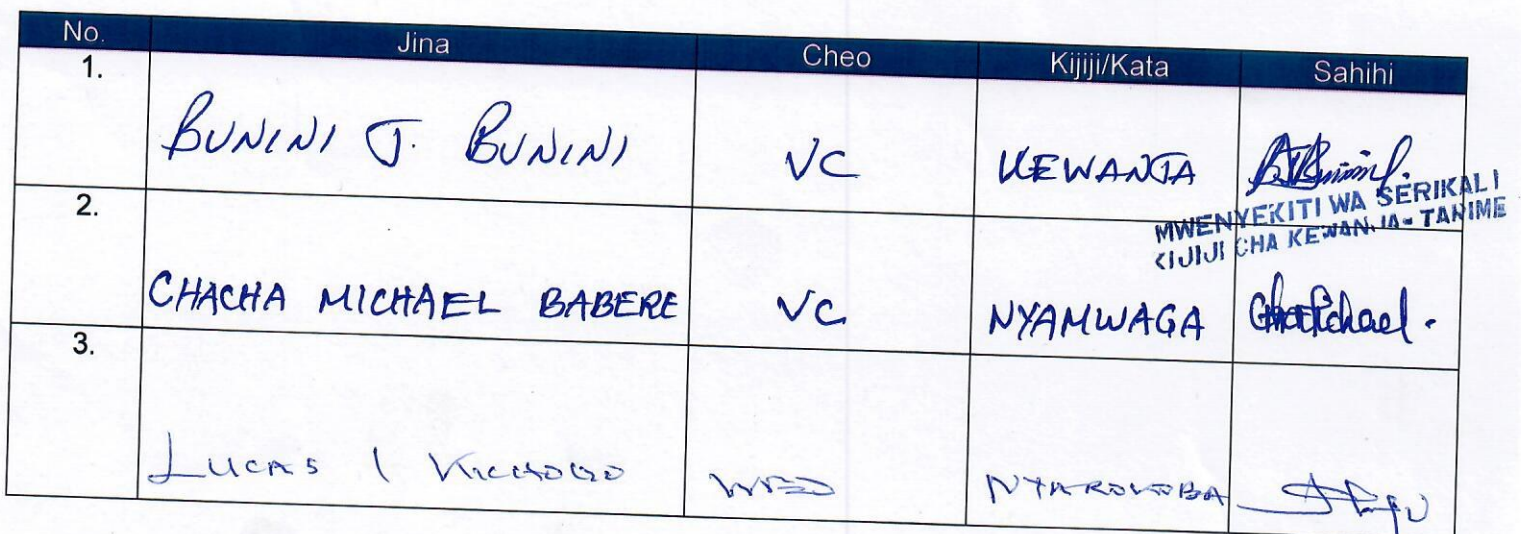 No. Jina Cheo Kijiji/Kata Sahihi
1. BUNINI J. BUNINI VC KEWANJA
MWENYEKITI WA SERIKALI
KIJIJI CHA KEWANJA - TARIME
2. CHACHA MICHAEL BABERE VC NYAMWAGA
3. LUCAS I KICHOGO WEO NYAROKOBA